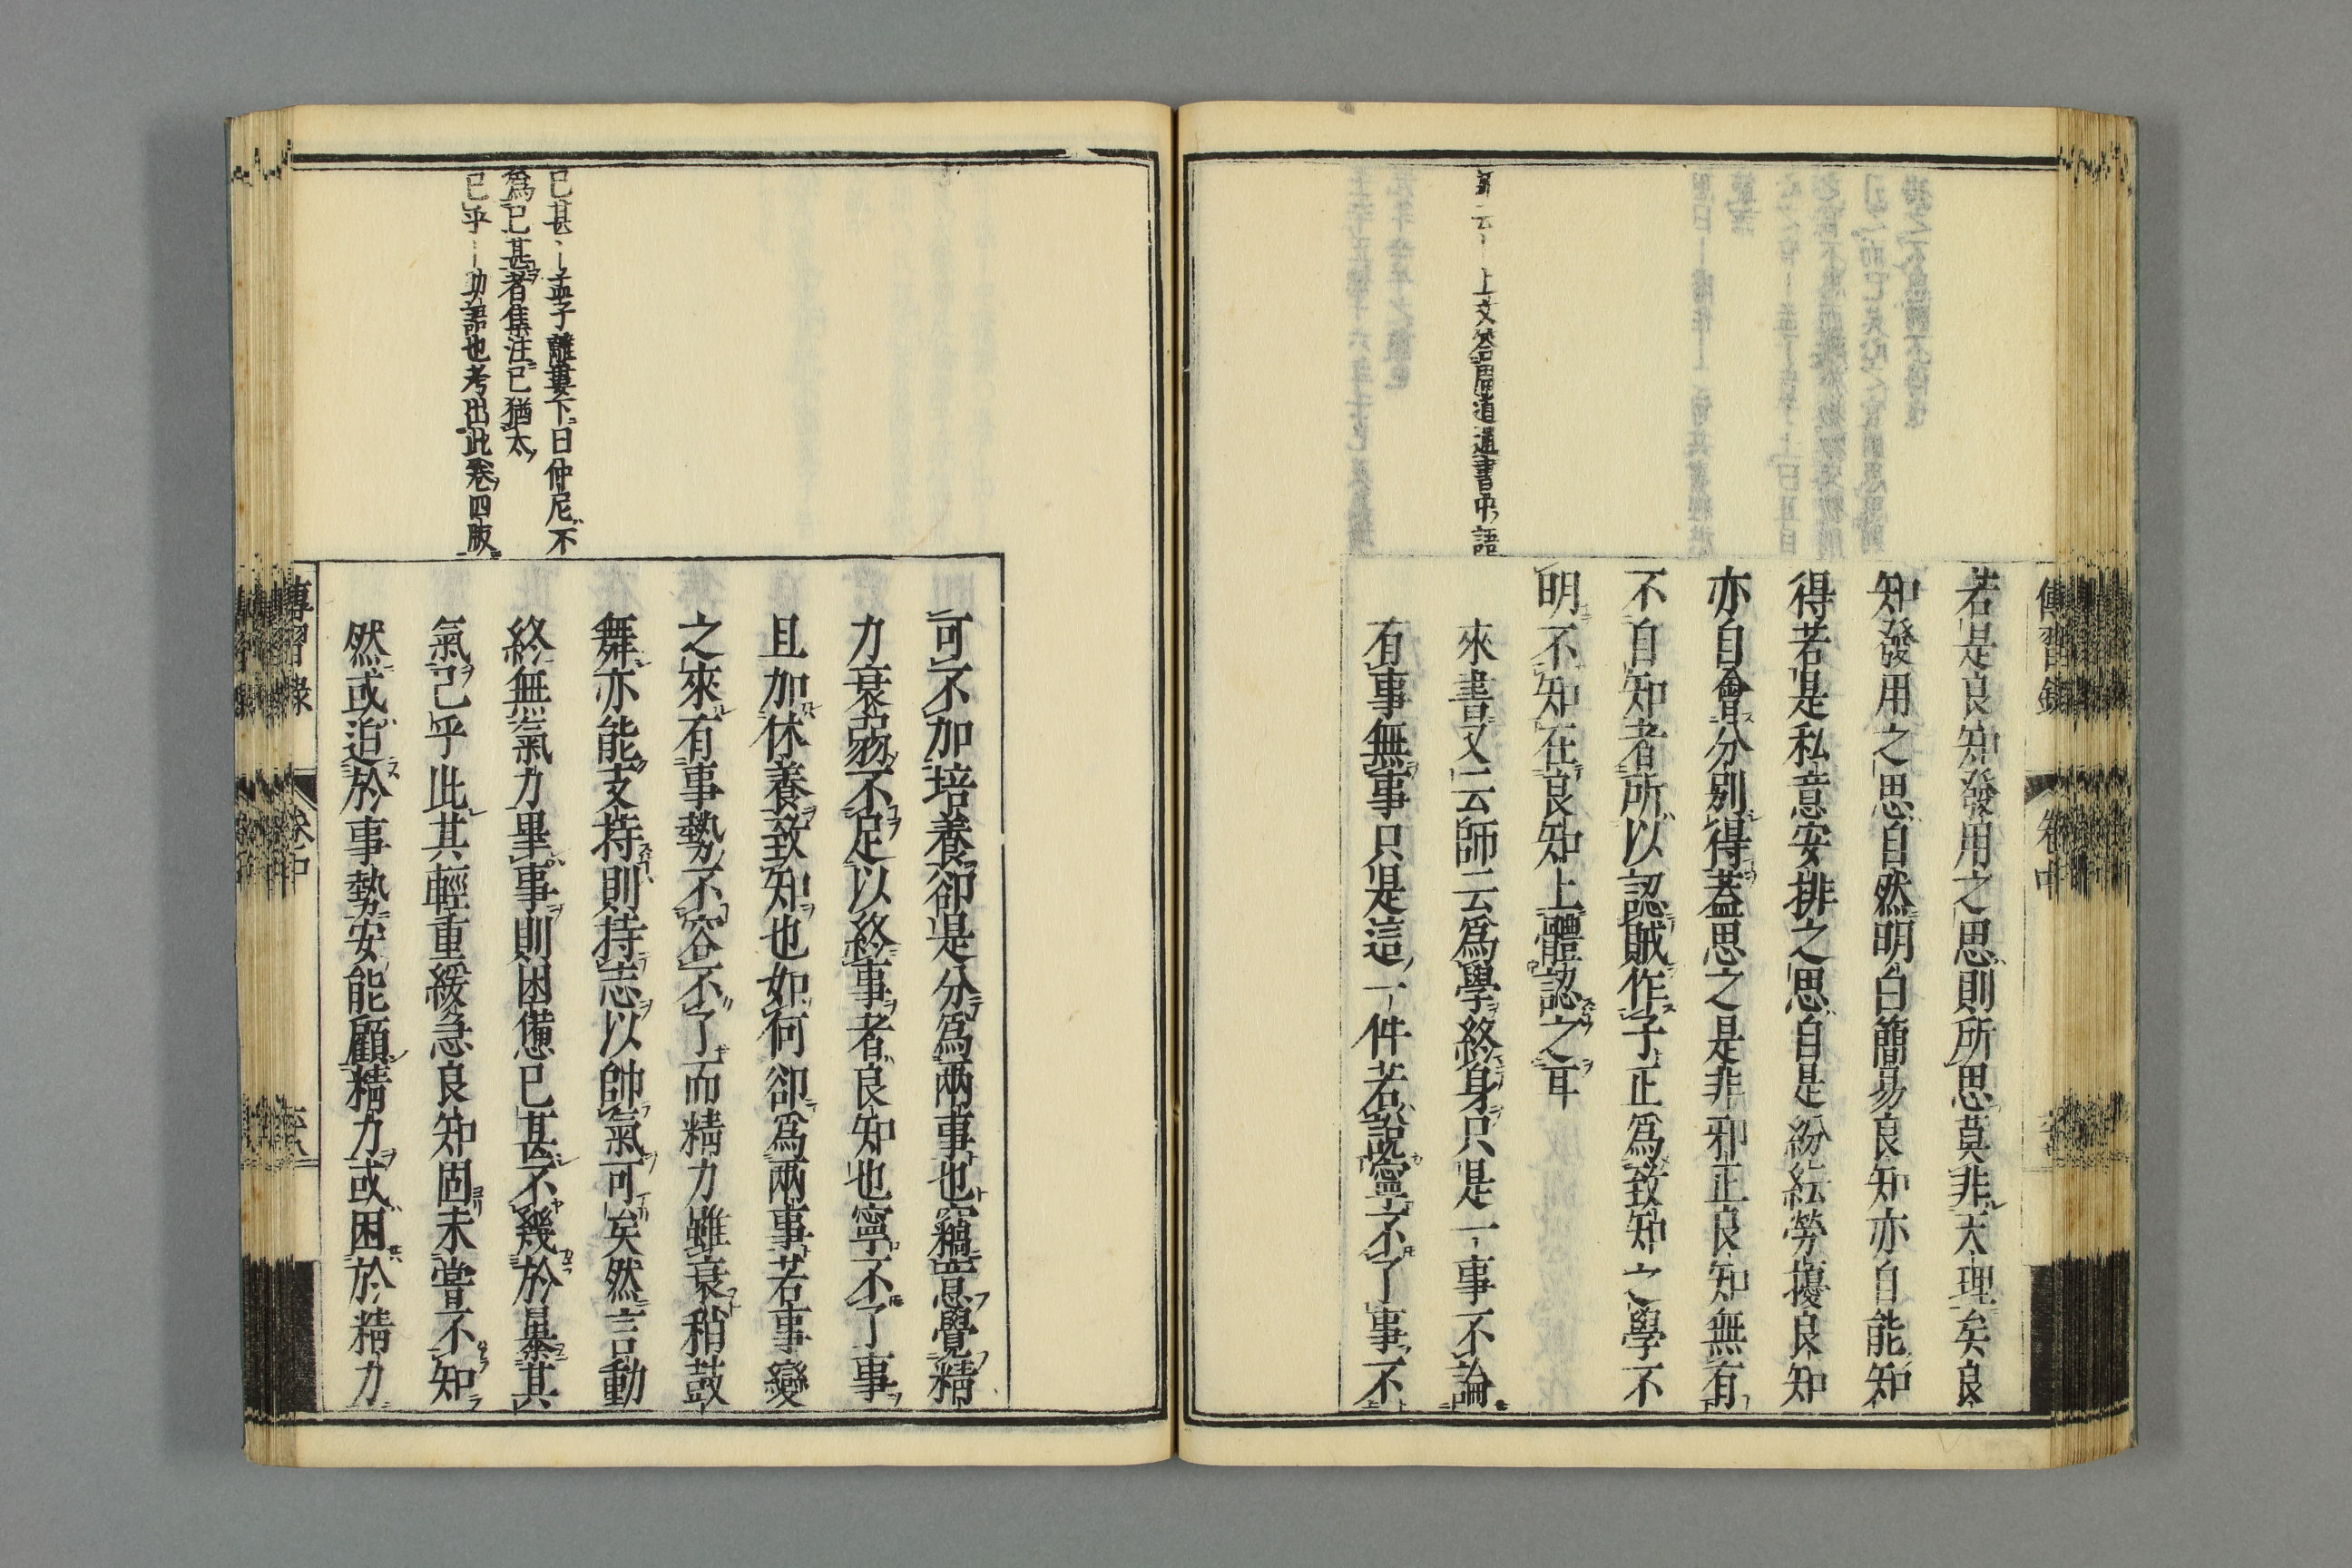 傳習錄
卷中
若是良知發用之思則所思莫非天理矣良
知發用之思自然明白簡易良知亦自能知
得若是私意安排之思自是紛紜勞擾良知
亦自會分別得蓋思之是非邪正良知無有
不自知者所以認賊作子正爲致知之學不
明不知在良知上體認之耳
來書又云師云爲學終身只是一事不論
有事無事只是這一件若說寧不了事不
上文答周道通書中語
可不加培養卻是分爲兩事也竊意覺精
力衰弱不足以終事者良知也寧不了事
且加休養致知也如何卻爲兩事若事變
之來有事勢不容不了而精力雖衰稍鼓
舞亦能支持則持志以帥氣可矣然言動
終無氣力畢事則困憊已甚不幾於暴其
氣已乎此其輕重緩急良知固未嘗不知
然或迫於事勢安能顧精力或困於精力
已甚、〡孟子離婁下曰仲尼不
爲已甚者集注已猶太
已乎〡助語也考出此卷四版
傳習錄
卷中